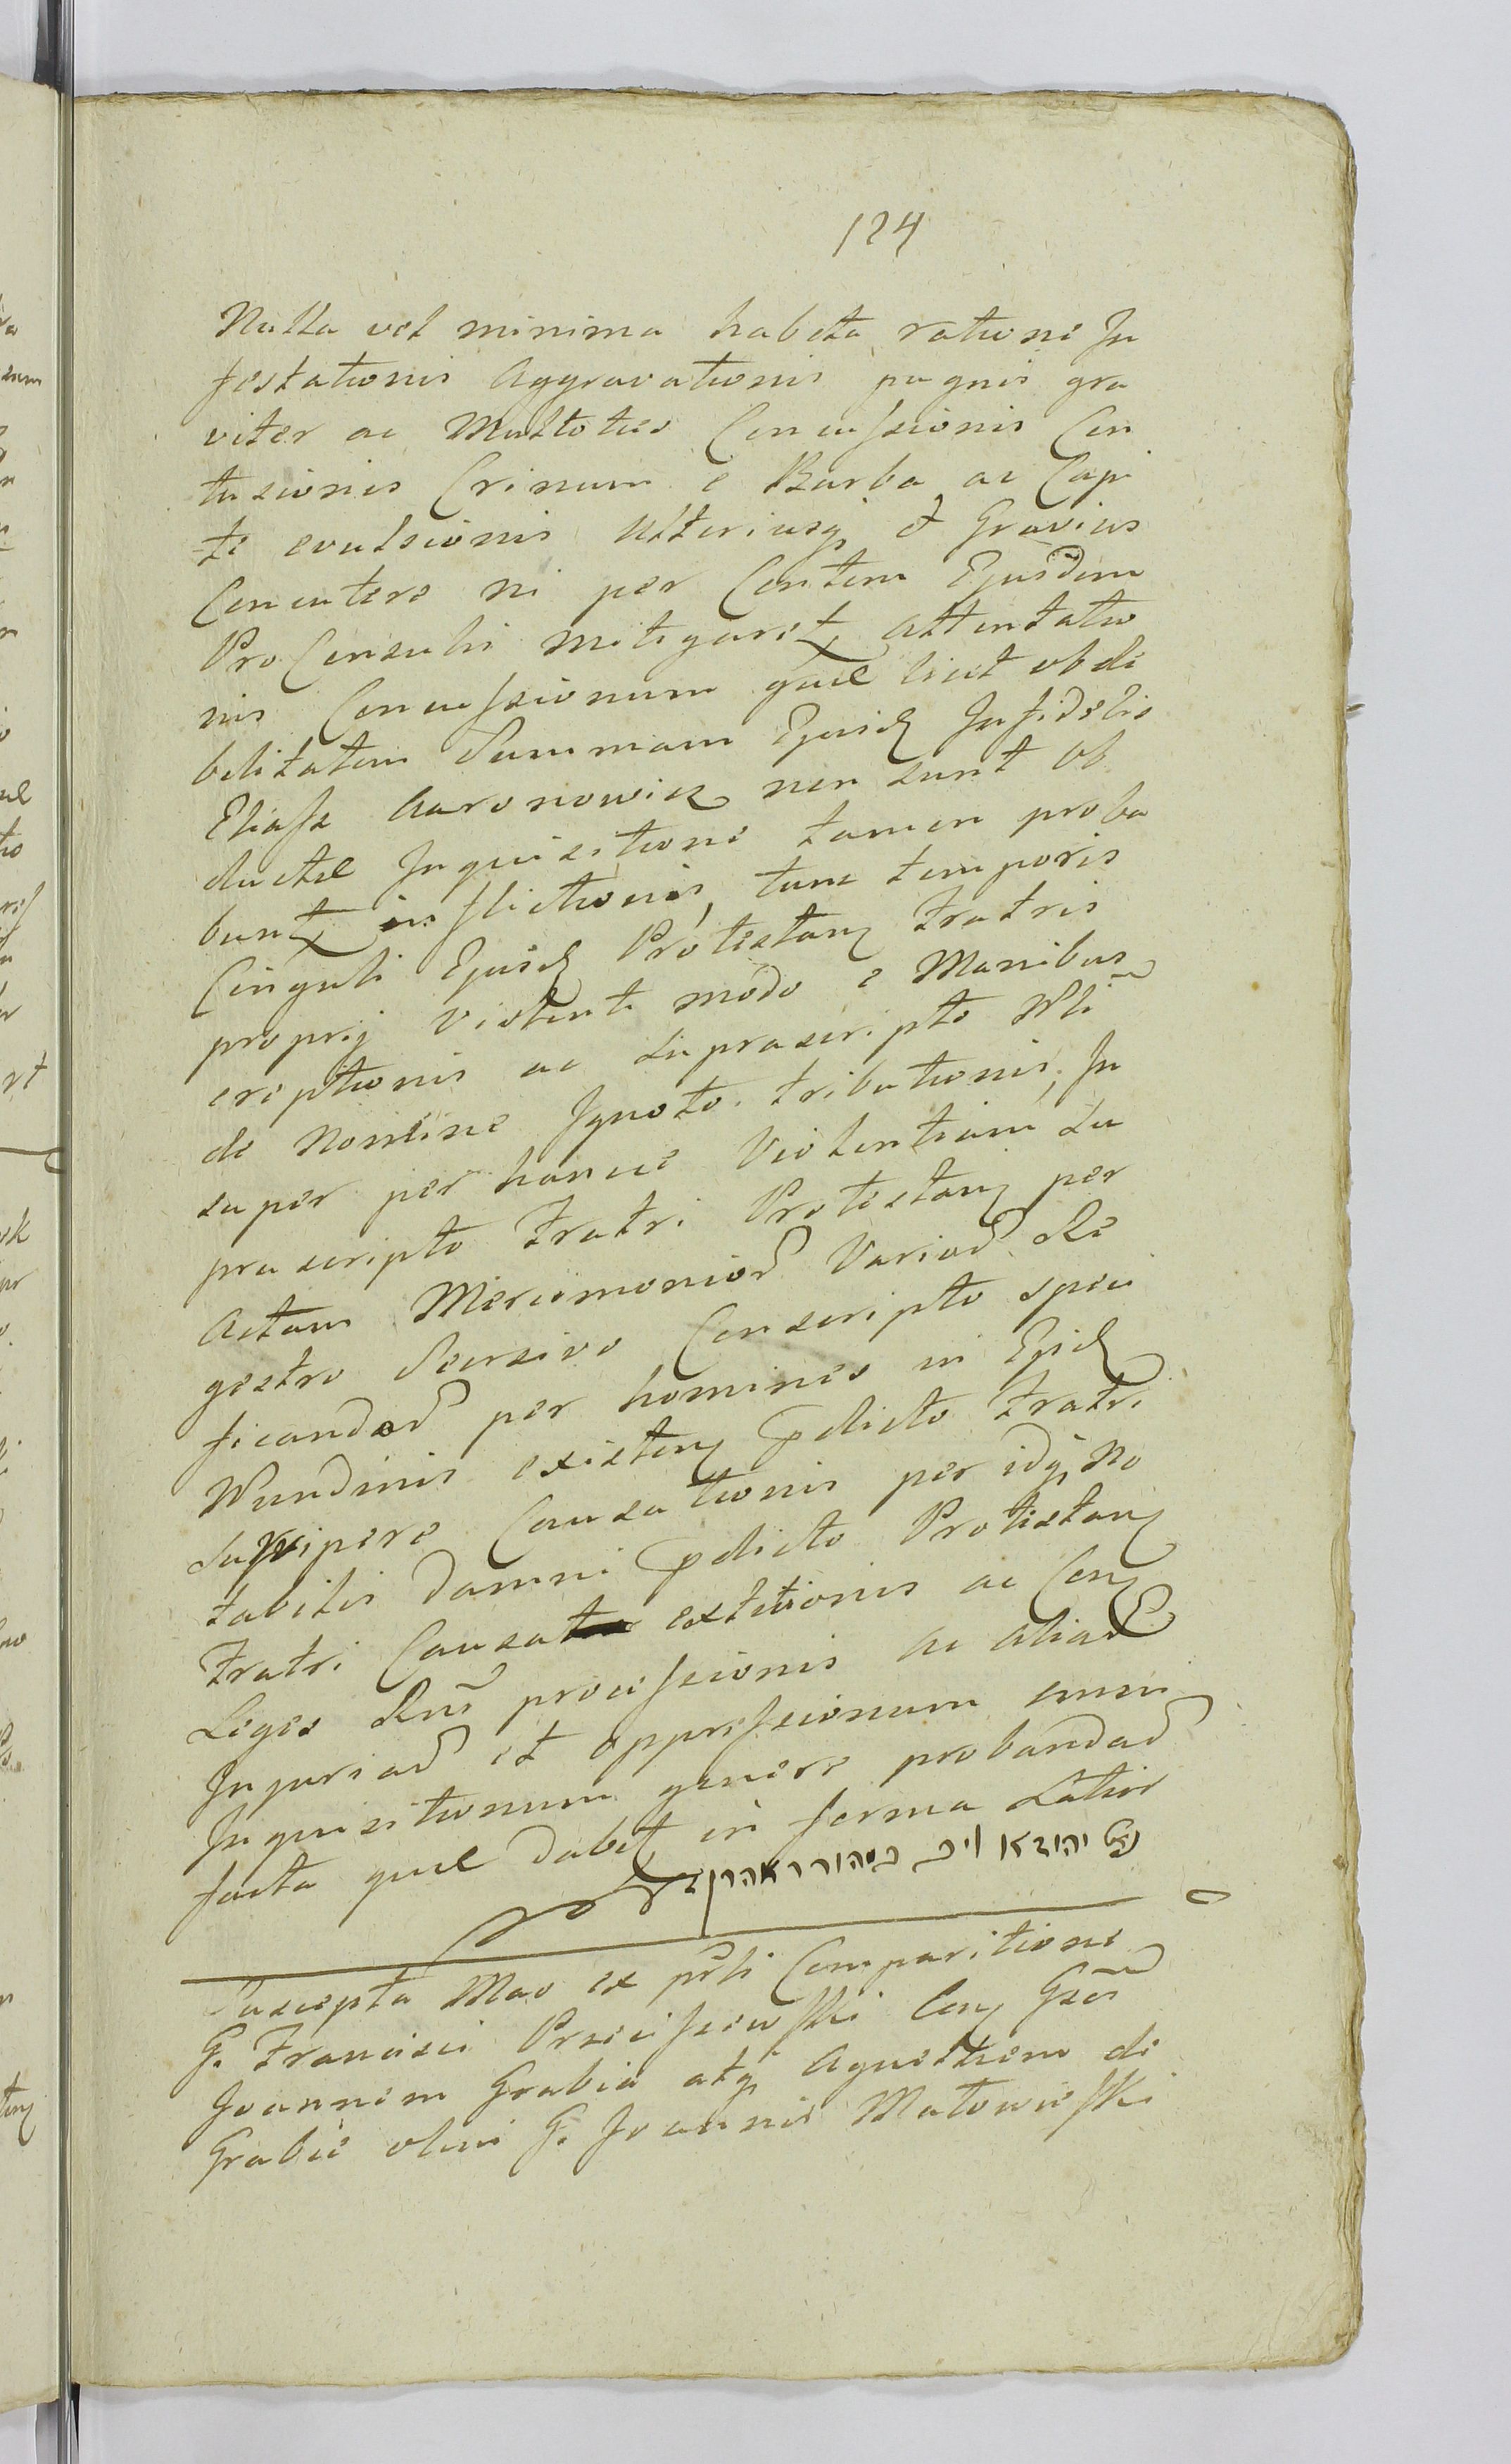 124
Nulla vel minima habita ratione In
festationis Aggravationis pugnis gra
viter ac Multoties Concussionis Con
tusionis Crinum e Barba ac Capi
te evulsionis Ulteriusq et Gravius
Concutere ni per Contem Ejusdem
Pro Consulis mitigaret attentatio
nis Concussionum quae licet ob de
bilitatem Summam Ejusd Infidelis
Eliasz Aaronowicz non sunt Ob
ductae Inquisitione tamen proba
bunt inflictionis, tunc temporis
Cinguli Ejusd Protestan Fratris
proprij violenti modo e Manibus
ereptionis ac Suprascripto Nli
de Nomine Ignoto tributionis, In
super per hancce Violentiam Su
prascripto Fratri Protestan per
Actam Mercimonior Varior Re
gestro Seorsivo Conscripto speci
ficandor per homines in Ejusd
Nundinis existen pdicto Fratri
Surripere Causationis per idq no
tabilis Damni pdicto Protestan
Fratri extitionis ac Con
Leges Rni processionis ac aliar
Injuriar et oppressionum omni
Inquisitionum genere probandar
facta quae dabit in forma Latior
Suscepta Mao ex prli Comparitione
G. Francisci Przeciszewski Con Gsos
Joannem Grabia atq Agnettem de
Grabie olim G. Joannis Matowieski